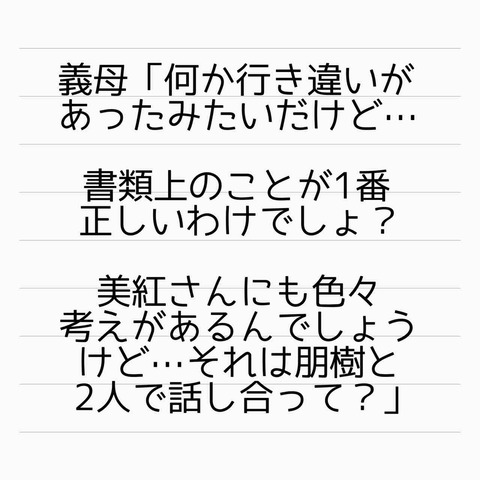 義母「何か行き違いが
あったみたいだけど…
書類上のことが1番
正しいわけでしょ？
美紅さんにも色々
考えがあるんでしょう
けど…それは朋樹と
2人で話し合って？」